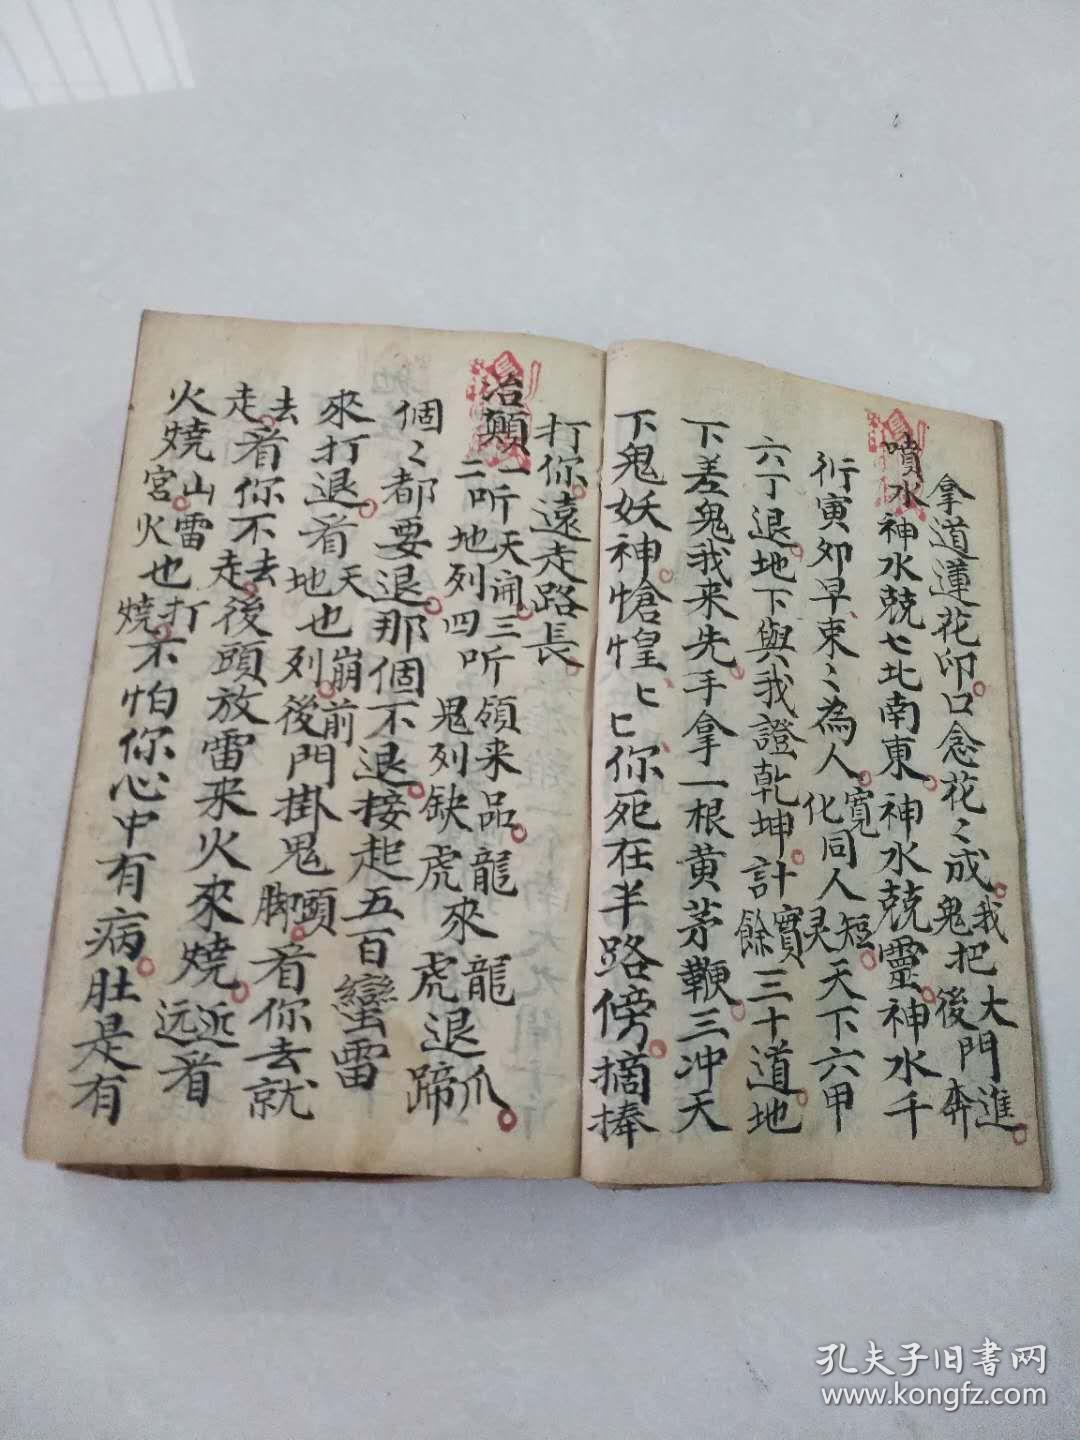 拿道蓮花印口念花〻成我把大門進鬼後奔
噴水神水兢七北南東神水兢靈神水千
衍寅夘早東〻為人寬化同人短灵天下六甲
六丁退地下與我證乾坤計實餘三十道地
下差鬼我来先手拿一根黄茅鞭三冲天
下鬼妖神愴惶〻你死在半路傍摘捧
打你遠走路長
治顛一听天開三听領来品龍來龍爪
二听地列四听鬼列缺虎來虎退蹄
個〻都要退那個不退接起五百蠻雷
來打退看天也崩前門掛鬼頭看你去就
地也列後脚
去看你不去後頭放雷来火來燒近看
走走远
火燒山雷也打不怕你心中有病肚是有
宮火燒
孔夫子旧書网
www.kongfz.com